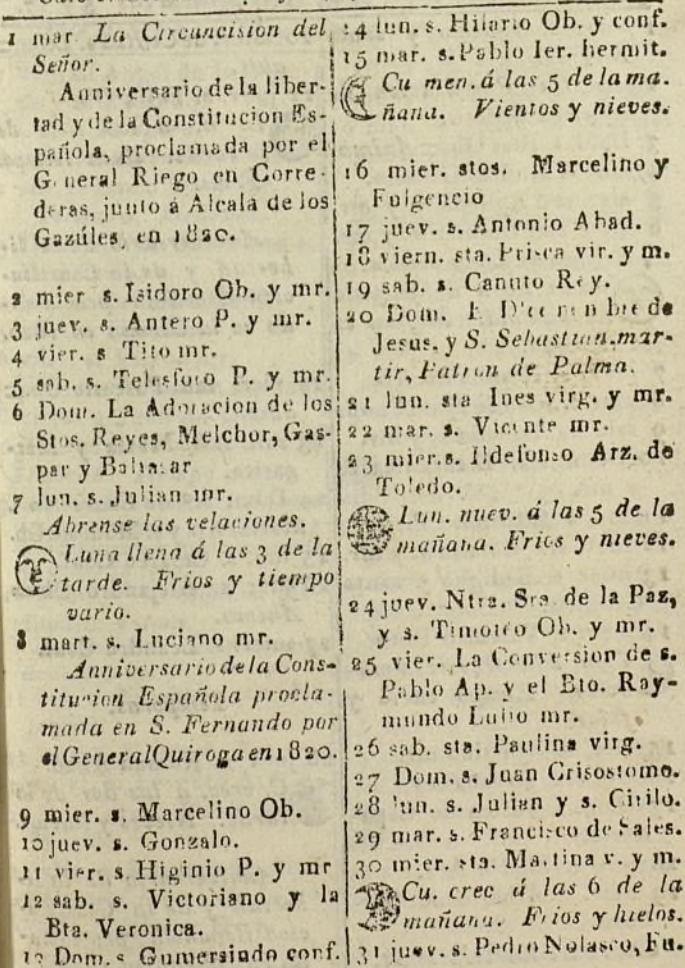 1 mar La Circuncision del
Señor.
Anniversario de la liber-
tad y de la Constitucion Es-
pañola, proclamada por el
General Riego en Corre-
deras, junto á Alcalá de los
Gazúles, en 1820.
2 mier s. Isidoro Ob. y mr.
3 juev. s. Antero P. y mr.
4 vier. s Tito mr.
5 sab. s. Telesforo P. y mr.
6 Dom. La Adoracion de los
Stos. Reyes, Melchor, Gas-
par y Baltazar
7 lun. s. Julian mr.
Abrense las velaciones.
Luna llena á las 3 de la
tarde. Frios y tiempo
vario.
8 mart. s. Luciano mr.
Anniversario de la Cons-
titucion Española procla-
mada en S. Fernando por
el General Quiroga en 1820.
9 mier. s. Marcelino Ob.
10 juev. s. Gonzalo.
11 vier. s. Higinio P. y mr
12 sab. s. Victoriano y la
Bta. Veronica.
13 Dom. s Gumersindo conf.
14 lun. s. Hilario Ob. y conf.
15 mar. s. Pablo Ier. hermit.
Cu men. á las 5 de la ma-
ñana. Vientos y nieves.
16 mier. stos. Marcelino y
Fulgencio
17 juev. s. Antonio Abad.
18 viern. sta. Prisca vir. y m.
19 sab. s. Canuto Rey.
20 Dom. E. D'ce nombre de
Jesus, y S. Sebastian, mar-
tir, Patron de Palma.
21 lun. sta Ines virg. y mr.
22 mar. s. Vicente mr.
23 mier. s. Ildefonso Arz. de
Toledo.
Lun. nuev. á las 5 de la
mañana. Frios y nieves.
24 juev. Ntra. Sra de la Paz,
y s. Timoteo Ob. y mr.
25 vier. La Conversion de s.
Pablo Ap. y el Bto. Ray-
mundo Lulio mr.
26 sab. sta. Paulina virg.
27 Dom. s. Juan Crisostomo.
28 lun. s. Julian y s. Cirilo.
29 mar. s. Francisco de Sales.
30 mier. sta. Martina v. y m.
Cu. crec á las 6 de la
mañana. Frios y hielos.
31 juev. s. Pedro Nolasco, Fu.